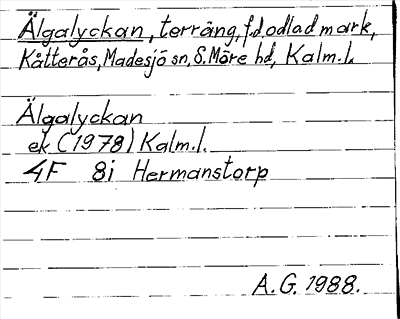 Älgalyckan, terräng, f.d. odlad mark,
Kåtterås, Madesjö sn, S. Möre hd, Kalm. l.
Älgalyckan
ek (1978) Kalm. l.
4F 8i Hermanstorp
A. G. 1988.